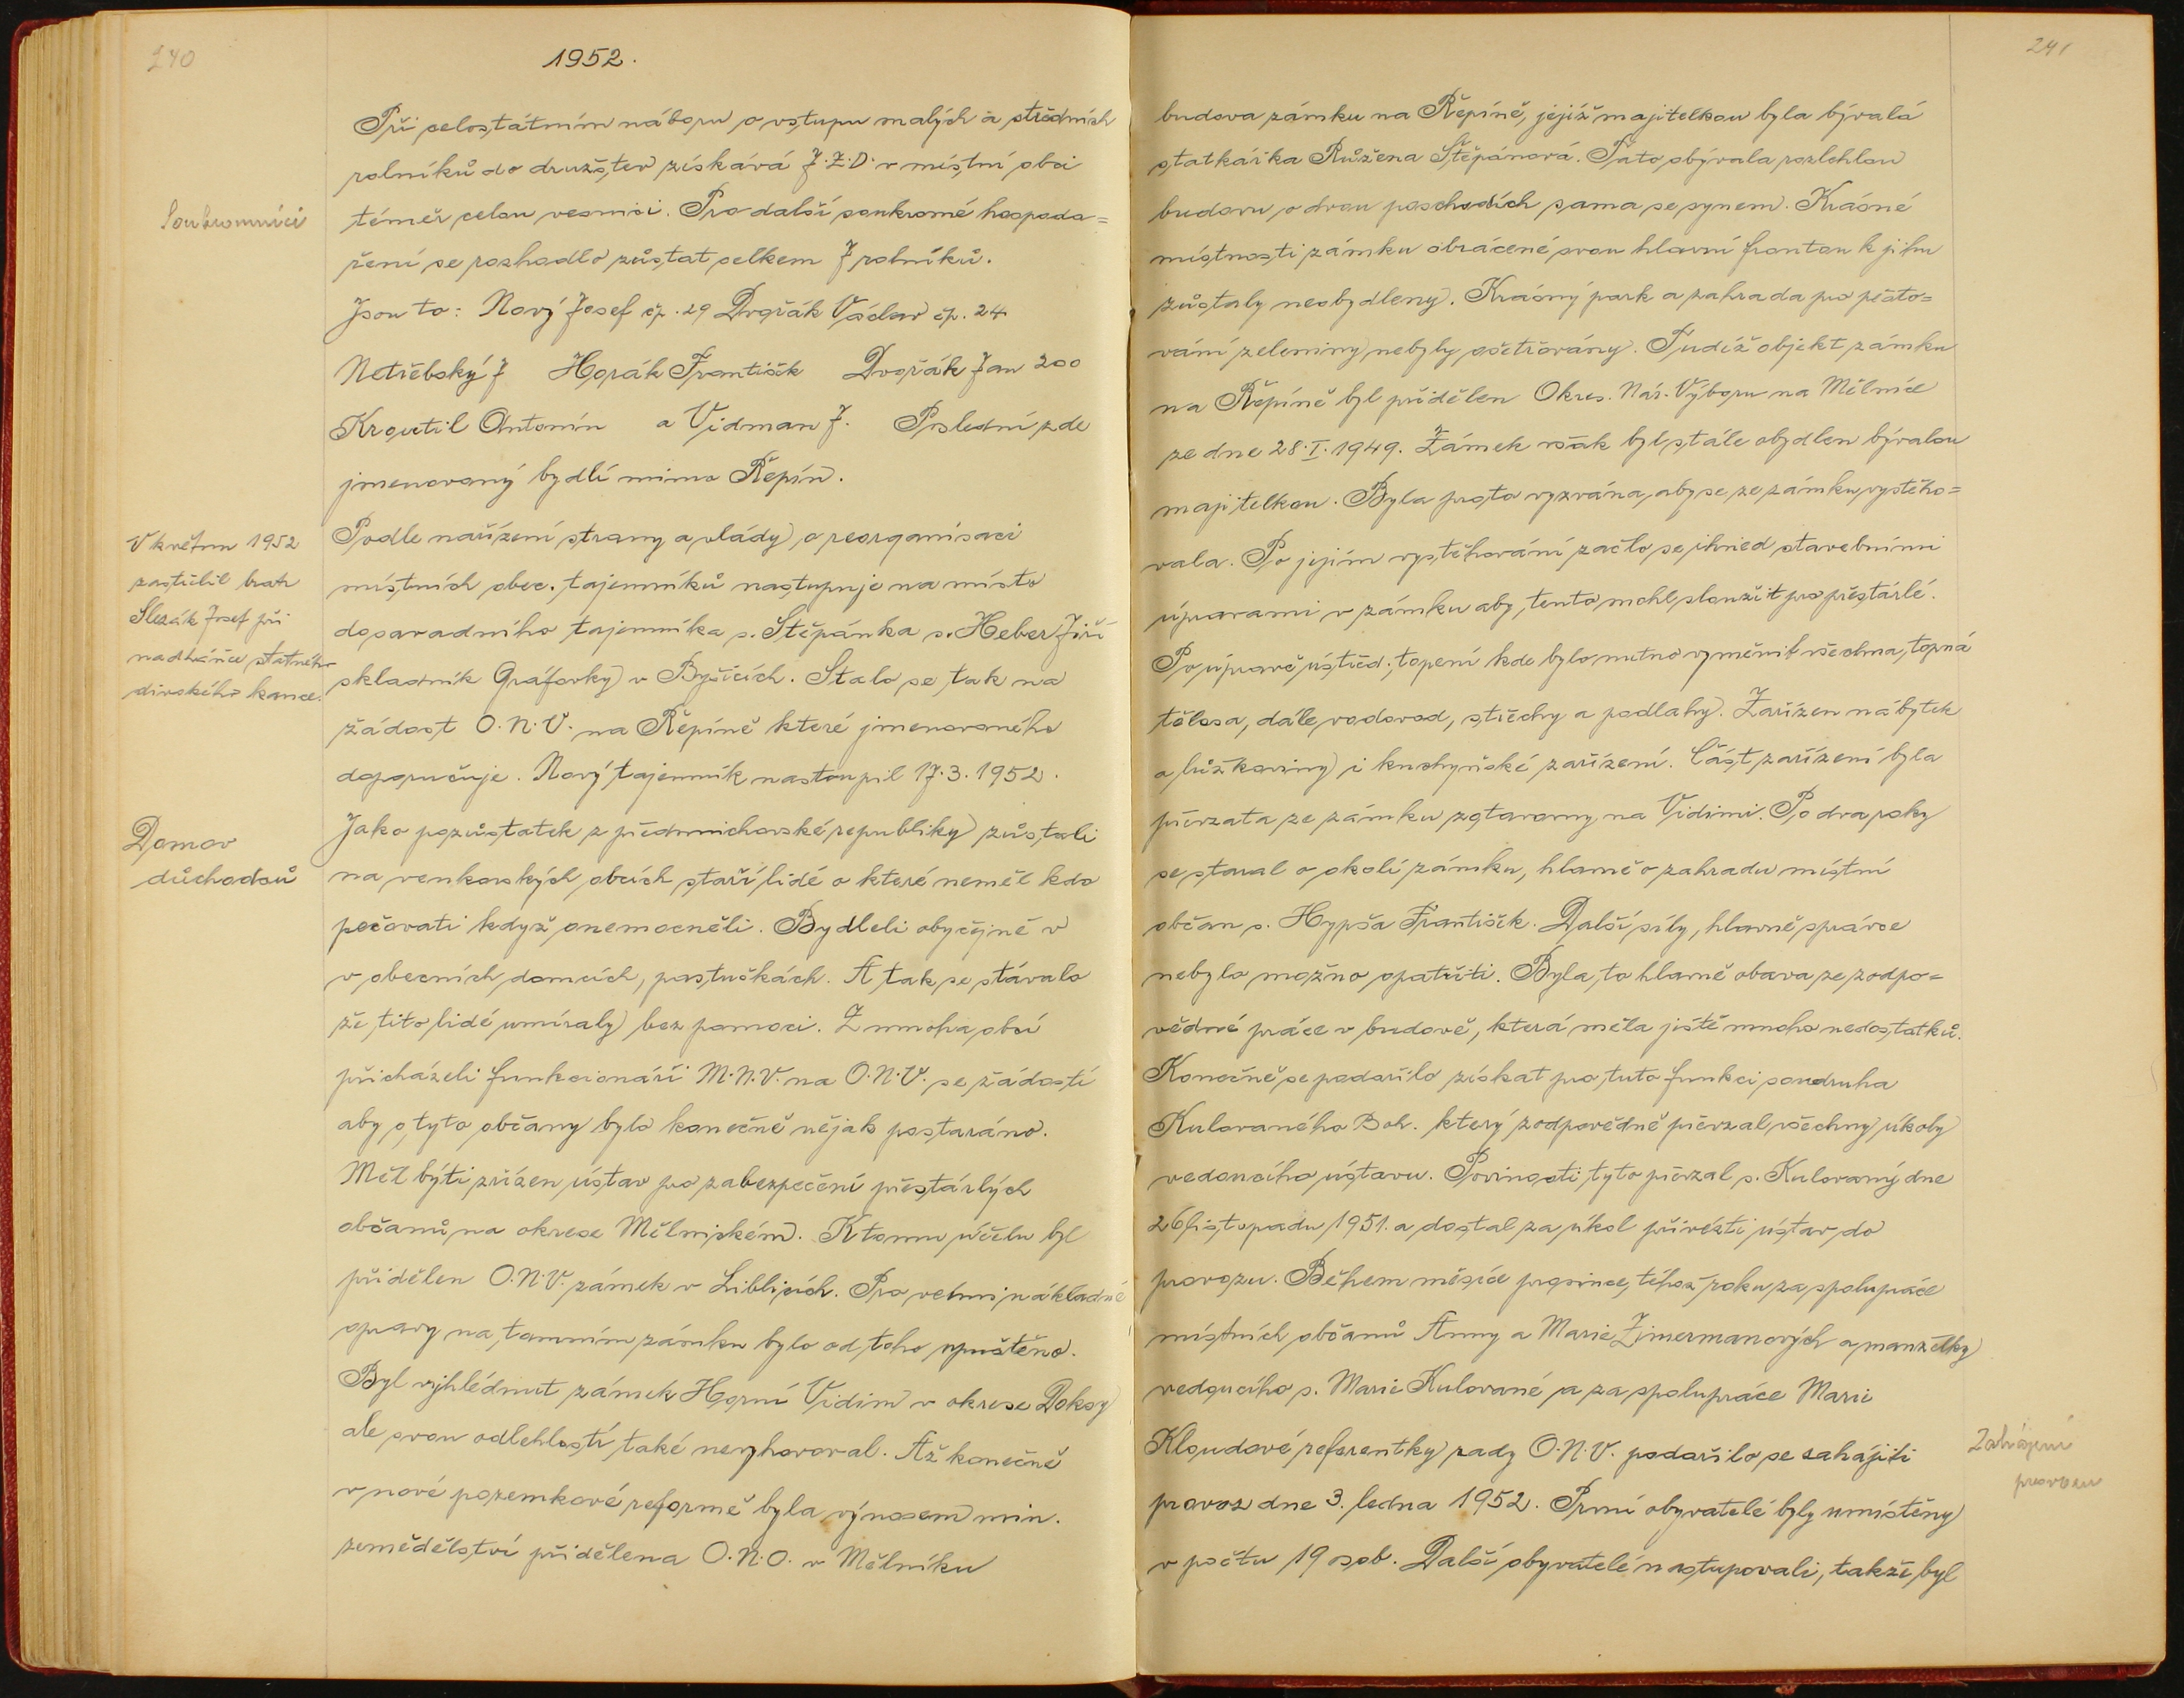 240
1952.
Při celostátním náboru o vstupu malých a středních
rolníků do družstev získává J.Z.D. v místní obci
Soukromníci
téměř celou vesnici. Pro další soukromé hospoda=
ření se rozhodlo zůstat celkem 7 rolníků.
Jsou to: Nový Josef čp. 29 Dvořák Václav čp. 24
Netřebský J Horák František Dvořák Jan 200
Kroutil Antonín a Vidman J. Poslední zde
jmenovaný bydlí mimo Řepín.
V květnu 1952
zastřelil bratr
Slezák Josef při
nadháňce statného
divokého kance.
Podle nařízení strany a vlády o reorganisaci
místních obec. tajemníků nastupuje na místo
dosavadního tajemníka s. Štěpánka s. Heber Jiří
skladník Gráfovky v Byšicích. Stalo se tak na
žádost O.N.V. na Řepíně které jmenovaného
doporučuje. Nový tajemník nastoupil 17.3.1952.
Domov
důchodců
Jako pozůstatek z předmnichovské republiky zůstali
na venkovských obcích staří lidé o které neměl kdo
pečovati když onemocněli. Bydleli obyčejně v
v obecních domcích, pastuškách. A tak se stávalo
že tito lidé umíraly bez pomoci. Z mnoha obcí
přicházeli funkcionáři M.N.V. na O.N.V. se žádostí
aby o tyto občany bylo konečně nějak postaráno.
Měl býti zřízen ústav pro zabezpečení přestárlých
občanů na okrese Mělnickém. K tomu účelu byl
přidělen O.N.V. zámek v Liblicích. Pro velmi nákladné
opravy na tamním zámku bylo od toho upuštěno.
Byl vyhlédnut zámek Horní Vidim v okrese Doksy
ale svou odlehlostí také nevyhovoval. Až konečně
v nové pozemkové reformě byla výnosem min.
zemědělství přidělena O.N.O. v Mělníku
241
budova zámku na Řepíně, jejíž majitelkou byla bývalá
statkářka Růžena Štěpánová. Tato obývala rozlehlou
budovu o dvou poschodích sama se synem. Krásné
místnosti zámku obrácené svou hlavní frontou k jihu
zůstaly neobydleny. Krásný park a zahrada pro pěsto=
vání zeleniny nebyly ošetřovány. Tudíž objekt zámku
na Řepíně byl přidělen Okres. Nár. Výboru na Mělníce
ze dne 28.I.1949. Zámek však byl stále obydlen bývalou
majitelkou. Byla proto vyzvána, aby se ze zámku vystěho=
vala. Po jejím vystěhování začlo se ihned stavebními
úpravami v zámku aby tento mohl sloužit pro přestárlé.
Po úpravě ústřed. topení kde bylo nutno vyměnit všechna topná
tělesa, dále vodovod, střechy a podlahy. Zařízen nábytek
a lůžkoviny i kuchyňské zařízení. Část zařízení byla
převzata ze zámku zotavovny na Vidimi. Po dva roky
se staral o okolí zámku, hlavně o zahradu místní
občan s. Hypša František. Další síly, hlavně správce
nebylo možno opatřiti. Byla to hlavně obava ze zodpo=
vědné práce v budově, která měla jistě mnoho nedostatků.
Konečně se podařilo získat pro tuto funkci soudruha
Kulovaného Boh. který zodpovědně převzal všechny úkoly
vedoucího ústavu. Povinosti tyto převzal s. Kulovaný dne
26 listopadu 1951. a dostal za úkol přivésti ústav do
provozu. Během měsíce prosince, téhož roku za spolupráce
místních občanů Anny a Marie Zimermanových a manželky
vedoucího s. Marie Kulované a za spolupráce Marie
Kloudové referentky rady O.N.V. podařilo se zahájiti
Zahájení
provozu
provoz dne 3. ledna 1952. První obyvatelé byly umístěny
v počtu 19 osob. Další obyvatelé nastupovali, takže byl